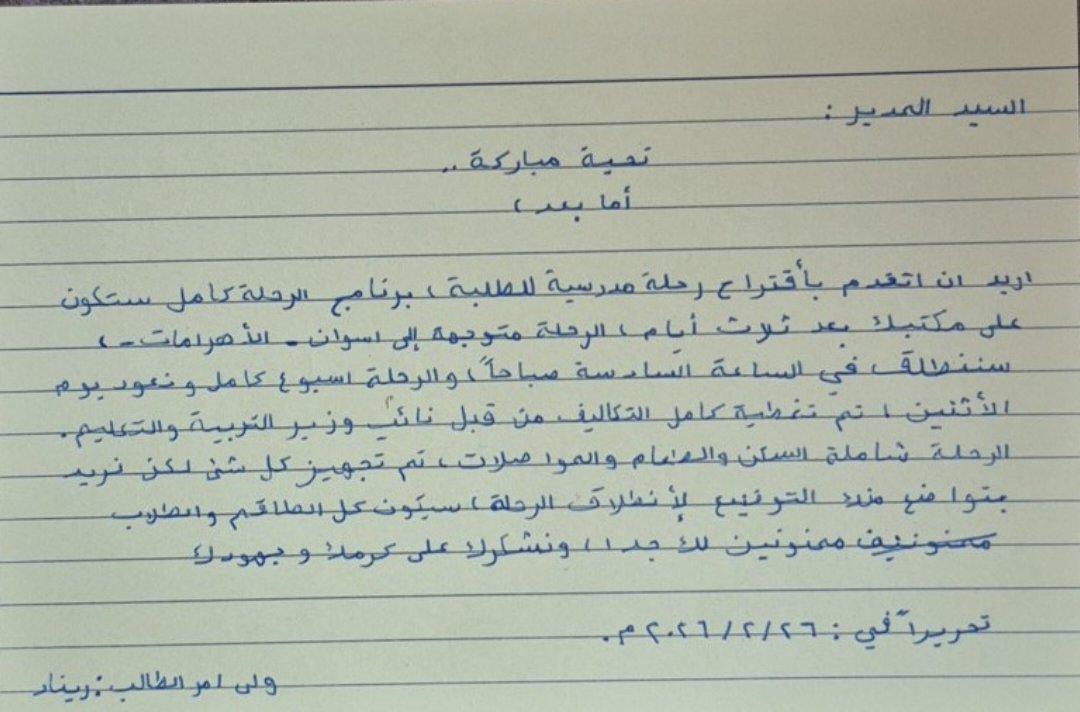 السيد المدير :
تحية مباركة ..
أما بعد ،
اريد ان اتقدم بأقتراح رحلة مدرسية للطلبة ، برنامج الرحلة كامل ستكون
على مكتبك بعد ثلاث أيام ، الرحلة متوجهة إلى اسوان - الأهرامات - ،
سننطلق في الساعة السادسة صباحاً ، والرحلة اسبوع كامل ونعود يوم
الأثنين ، تم تغطية كامل التكاليف من قبل نائب وزير التربية والتعليم .
الرحلة شاملة السكن والطعام والمواصلات ، تم تجهيز كل شئ لكن نريد
بتواضع منك التوقيع لأنطلاق الرحلة ، سيكون كل الطاقم والطلاب
ممنونين لك جدا ، ونشكرك على كرمك وجهودك
تحريراً في : ٢٠٢٦/٢/٢٦ م .
ولي امر الطالب : ريناد